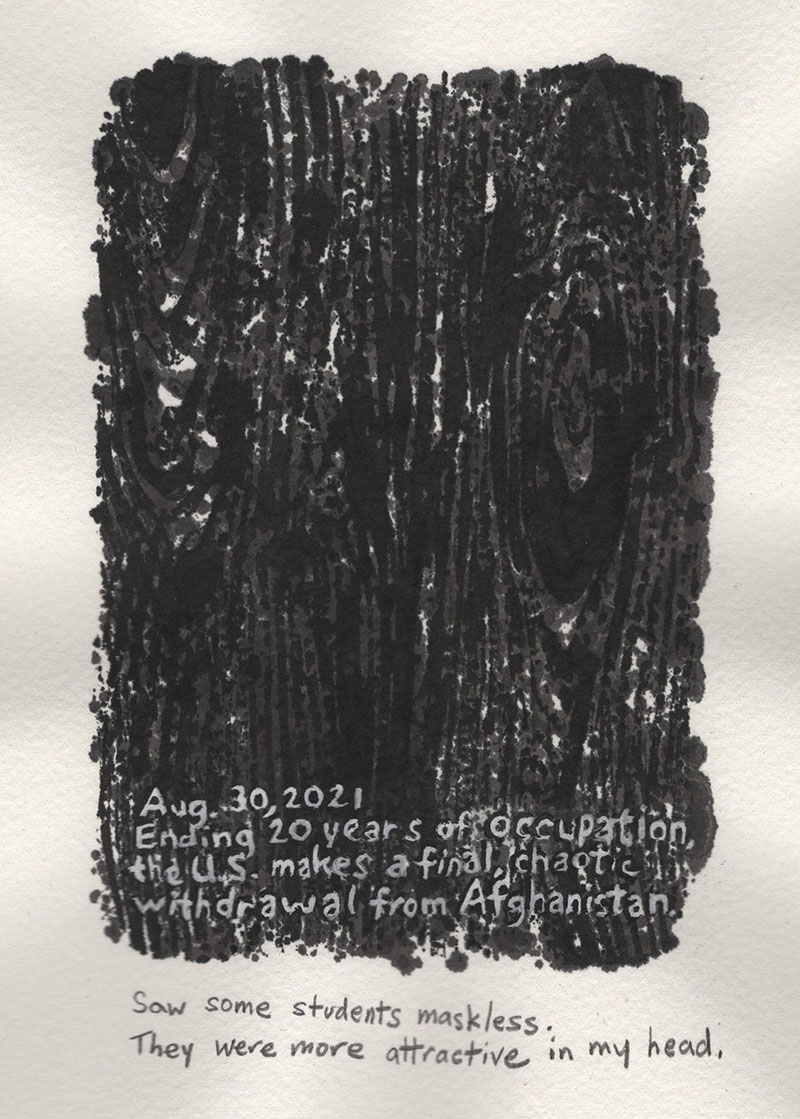 Aug. 30, 2021
Ending 20 years of occupation,
the U.S. makes a final, chaotic
withdrawal from Afghanistan.
Saw some students maskless.
They were more attractive in my head.